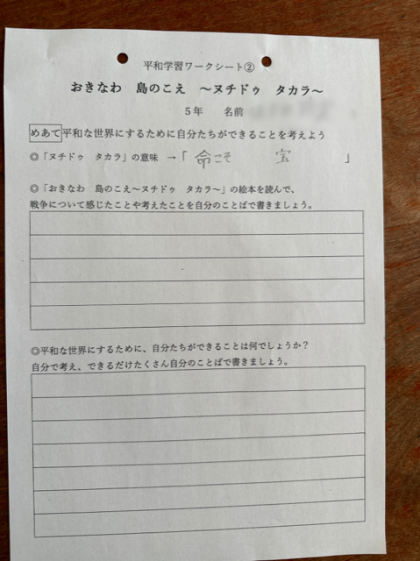 平和学習ワークシート②
おきなわ 島のこえ ～ヌチドゥ タカラ～
5年 名前
めあて 平和な世界にするために自分たちができることを考えよう
◎「ヌチドゥ タカラ」の意味 →「 命こそ 宝 」
◎「おきなわ 島のこえ～ヌチドゥ タカラ～」の絵本を読んで、
戦争について感じたことや考えたことを自分のことばで書きましょう。
◎平和な世界にするために、自分たちができることは何でしょうか？
自分で考え、できるだけたくさん自分のことばで書きましょう。